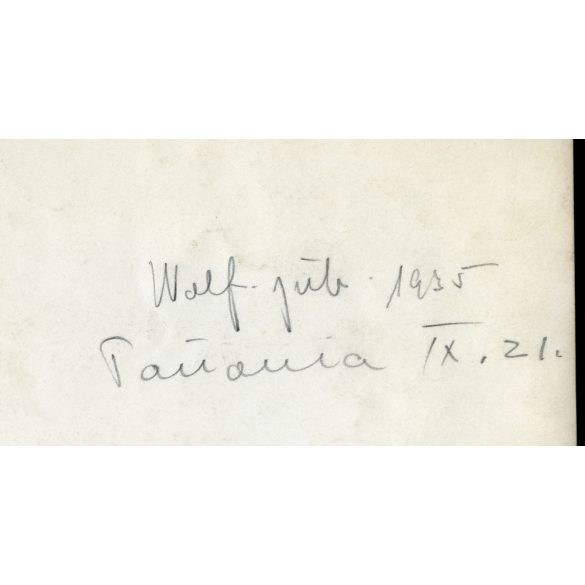 Wolf. jub. 1935
Pannonia IX. 21.